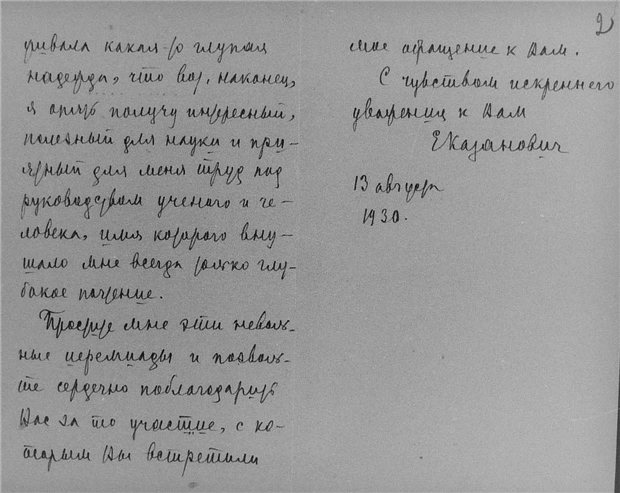 ривала какая-то глупая
надежда, что вот, наконец,
я опять получу интересный,
полезный для науки и при-
ятный для меня труд под
руководством ученого и че-
ловека, имя которого вну-
шало мне всегда только глу-
бокое почтение.
Простите мне эти неволь-
ные иеремиады и позволь-
те сердечно поблагодарить
Вас за то участие, с ко-
торым Вы встретили
2
мое обращение к Вам.
С чувством искреннего
уважения к Вам
ЕКазанович
13 августа
1930.